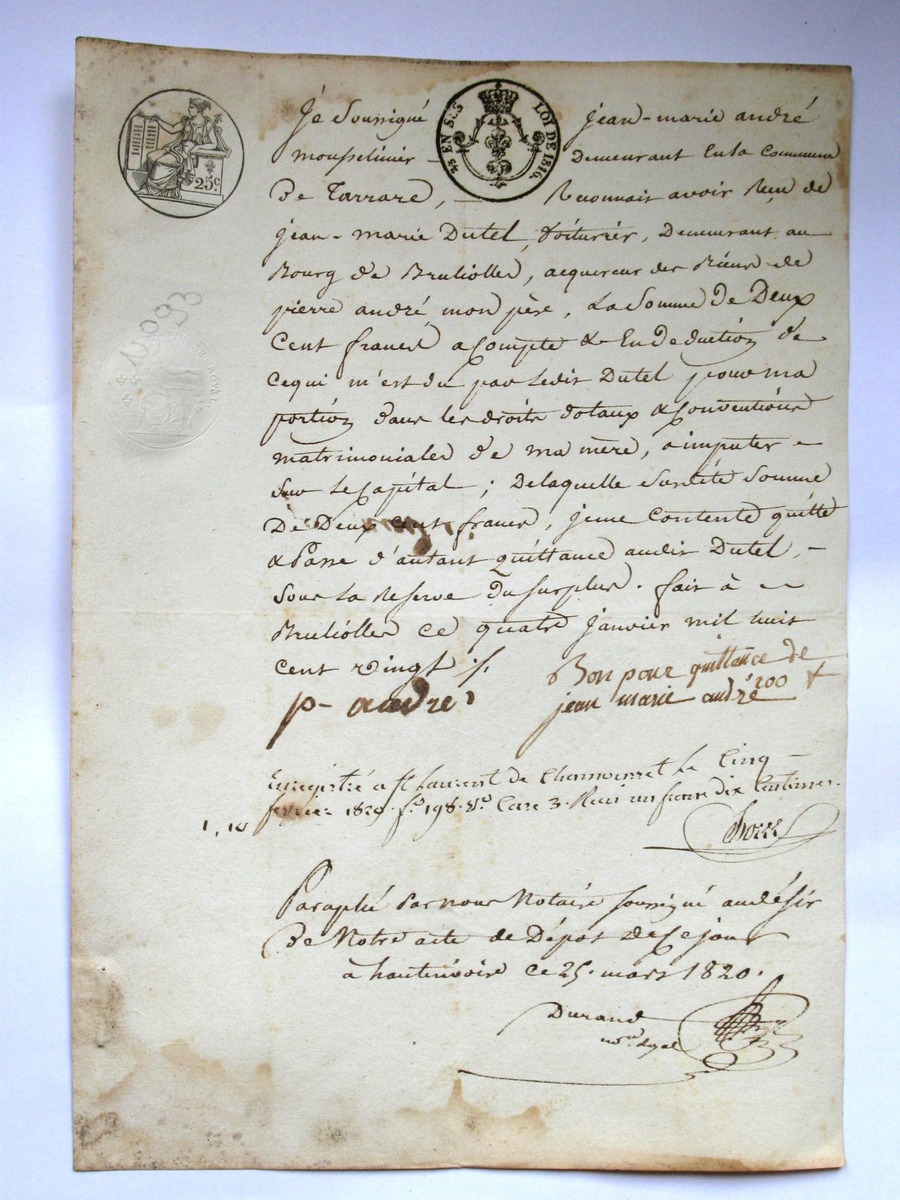 25 EN SUS LOI DE 1816.
25 c.
10093
ROYAL
Je Soussigné jean-marie andré
mousselinier - demeurant En la Commune
De Tarrare, - Reconnait avoir Reçu de
jean-marie Dutel, Voiturier, Demeurant au
Bourg de Brulliolles, acquereur des Biens de
pierre andré mon père, La Somme de Deux
Cent francs acompte & En Deduction de
cequi m'est du par Ledit Dutel pour ma
portion dans les droits dotaux & Conventions
matrimoniales de ma mère, a imputer -
Sur Le Capital ; De laquelle Susdite Somme
De Deux cent francs, jeme Contente quitte
& Passe d'autant quittance audit Dutel, -
Sous La Reserve Du Surplus. fait à -
Brulliolles ce quatre janvier mil huit
cent vingt ./.
Bon pour quittance de
p- andré jean marie andré 200 f
Enregistré a St Laurent de Chamousset Le Cinq
fevrier 1820 fo. 198 Vo. Case 3. Recu un franc dix Centimes.
1, 10
Paraphé Par nous Notaire soussigné au desir
De Notre acte de Dépot de Ce jour
à hauterivoire ce 25. mars 1820.
Durand
no.re royal